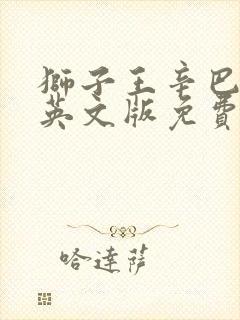 獅子王辛巴
英文版免費
哈達薩